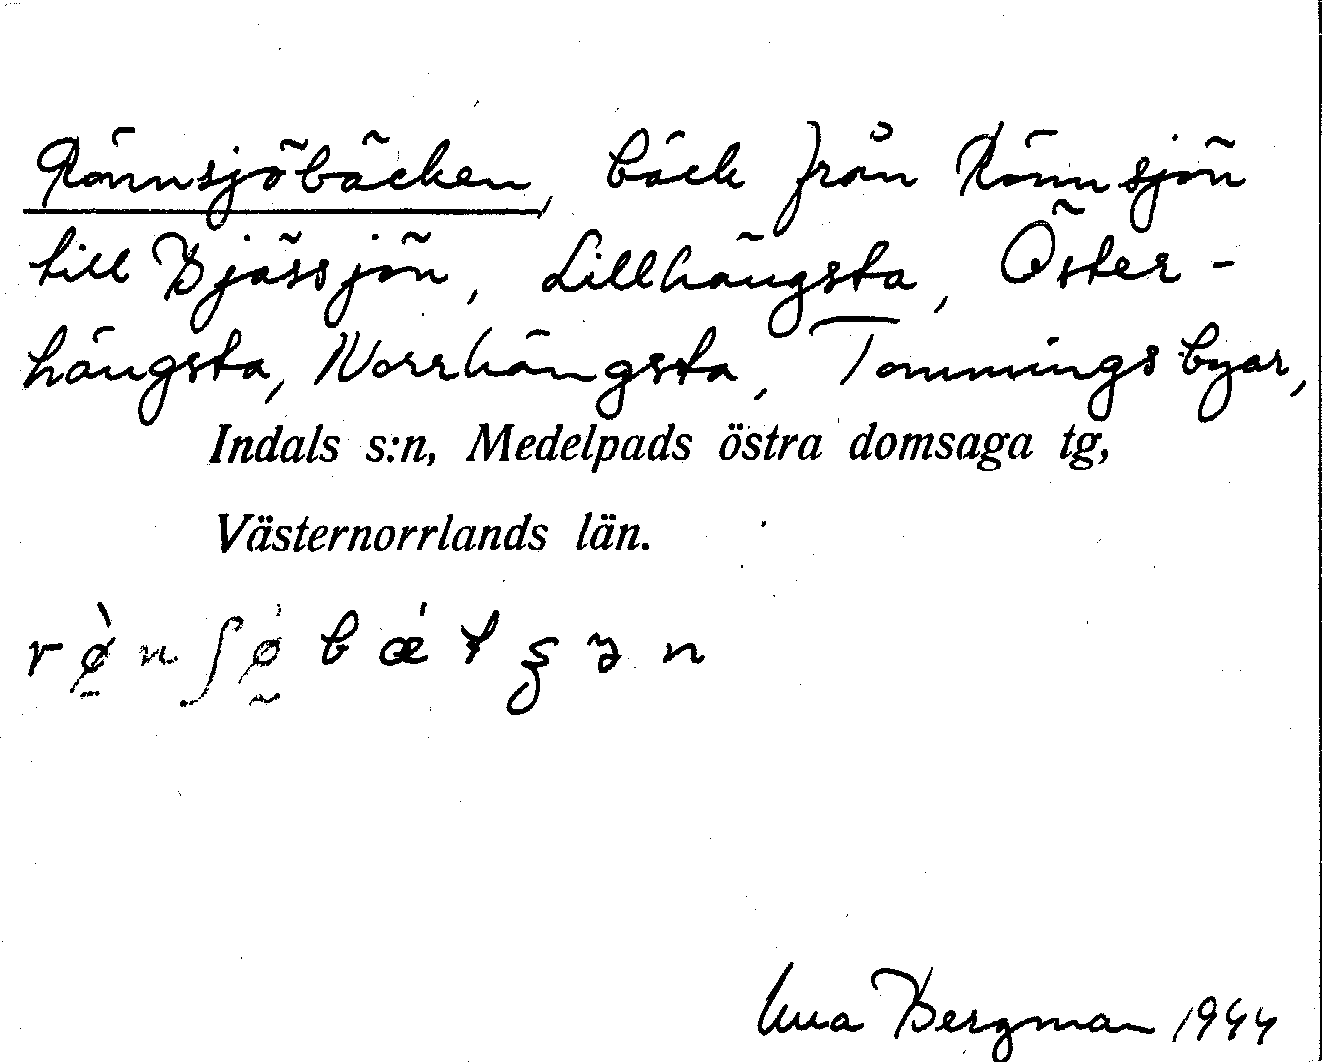 Rönnsjöbäcken, bäck från Rönnsjön
till Bjässjön, Lillhängsta, Öster-
hängsta, Norrhängsta, Tommings byar,
Indals s:n, Medelpads östra domsaga tg,
Västernorrlands län.
Bergman 1944